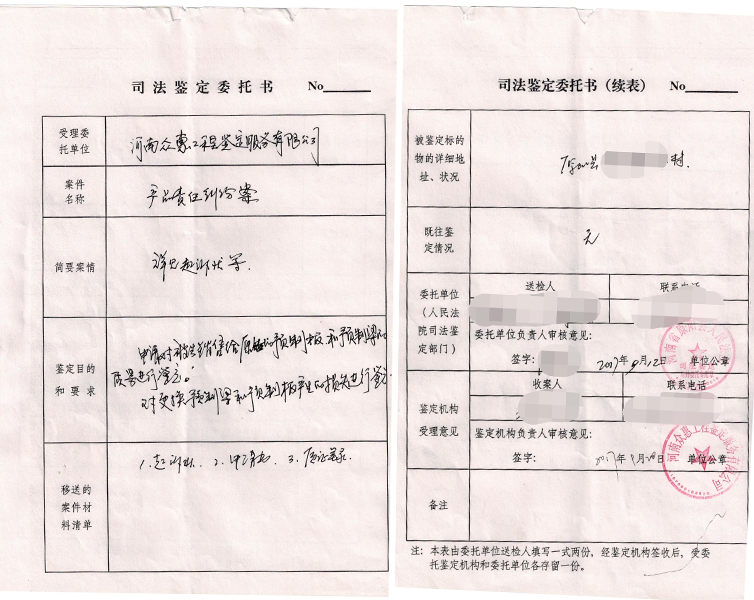 司法鉴定委托书 No
受理委
托单位
河南众惠工程鉴定服务有限公司
案件
名称
产品责任纠纷案
简要案情
详见起诉状等.
鉴定目的
和要求
质量进行鉴定。
对更换预制梁和预制板产生的损失进行鉴定
移送的
案件材
料清单
1.起诉状. 2.申请书 3.质证笔录
司法鉴定委托书（续表） No
被鉴定标的
物的详细地
址、状况
村.
既往鉴
定情况
无
委托单位
（人民法
院司法鉴
定部门）
送检人
联系电话
委托单位负责人审核意见：
签字：
2017年9月12日 单位公章
鉴定机构
受理意见
收案人
联系电话
鉴定机构负责人审核意见：
签字：
单位公章
备注
注：本表由委托单位送检人填写一式两份，经鉴定机构签收后，受委
托鉴定机构和委托单位各存留一份。